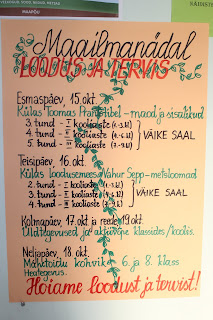 Maailmanädal
LOODUS JA TERVIS
Esmaspäev, 15. okt.
Külas Toomas - maod ja sisalikud
3. tund - I kooliaste (1.-3.kl)
4. tund - II kooliaste (4.-6.kl)
5. tund - III kooliaste (7.-9.kl)
VÄIKE SAAL
Teisipäev, 16. okt.
Külas loodusemees Vahur Sepp - metsloomad
2. tund - I kooliaste (1.-3.kl)
3. tund - II kooliaste (4.-6.kl)
4. tund - III kooliaste (7.-9.kl)
VÄIKE SAAL
Kolmapäev 17. okt ja reede 19. okt.
Üldtegevused ja aktiivõpe klassides/koolis.
Neljapäev, 18. okt.
Mahetoidu kohvik 6. ja 8. klass
Heategevus.
Hoiame loodust ja tervist!